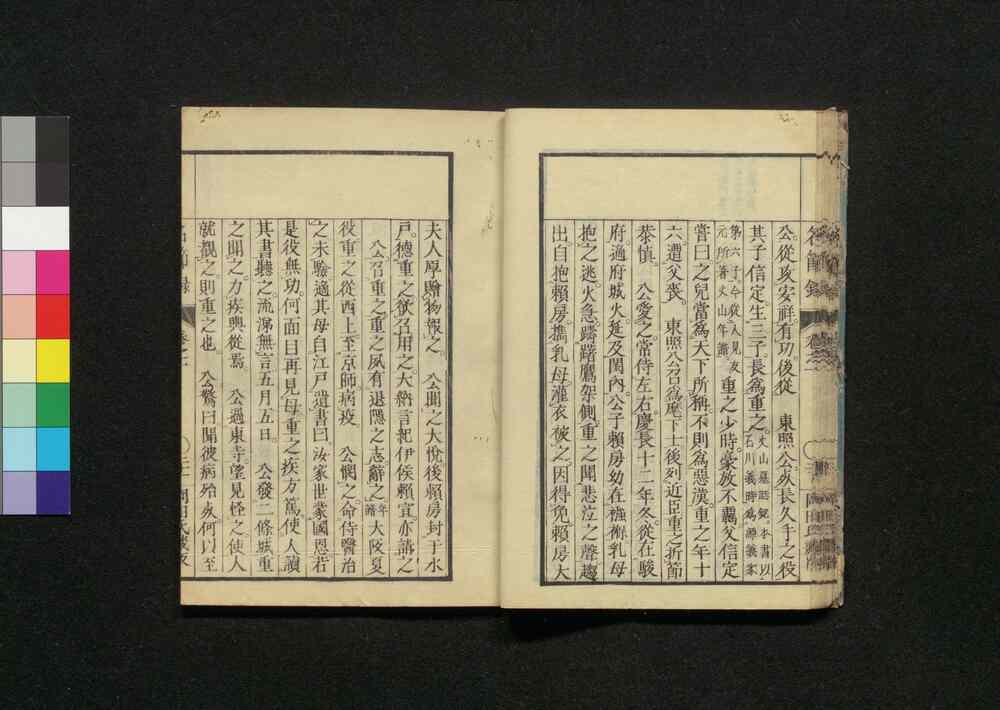 公從攻安祥有功後從　東照公於長久手之役
其子信定生三子長爲重之丈山墓誌銘本書以石川義時爲源義家
第六子今從人見友元所著丈山年譜重之少時豪放不羈父信定
嘗曰之兒當爲天下所稱不則爲惡漢重之年十
六遭父喪　東照公召爲麾下士後列近臣重之折節
恭慎　公愛之常侍左右慶長十二年冬從在駿
府適府城火延及閨內公子賴房幼在襁褓乳母
抱之逃火急躊躇鷹架側重之聞悲泣之聲趨
出自抱賴房攜乳母灌衣被之因得免賴房大
夫人厚贈物報之　公聞之大悅後賴房封于水
戶德重之欲召用之大納言紀伊侯賴宣亦請之
公召重之重之夙有退隱之志辭之年譜大阪夏
役重之從西上至京師病疫　公憫之命侍醫治
之未驗適其母自江戶遺書曰汝家世蒙國恩若
是役無功何面目再見母重之疾方篤使人讀
其書聽之流涕無言五月五日　公發二條城重
之聞之力疾輿從焉　公過東寺望見怪之使人
就觀之則重之也　公驚曰聞彼病殆矣何以至
名節錄　卷之二